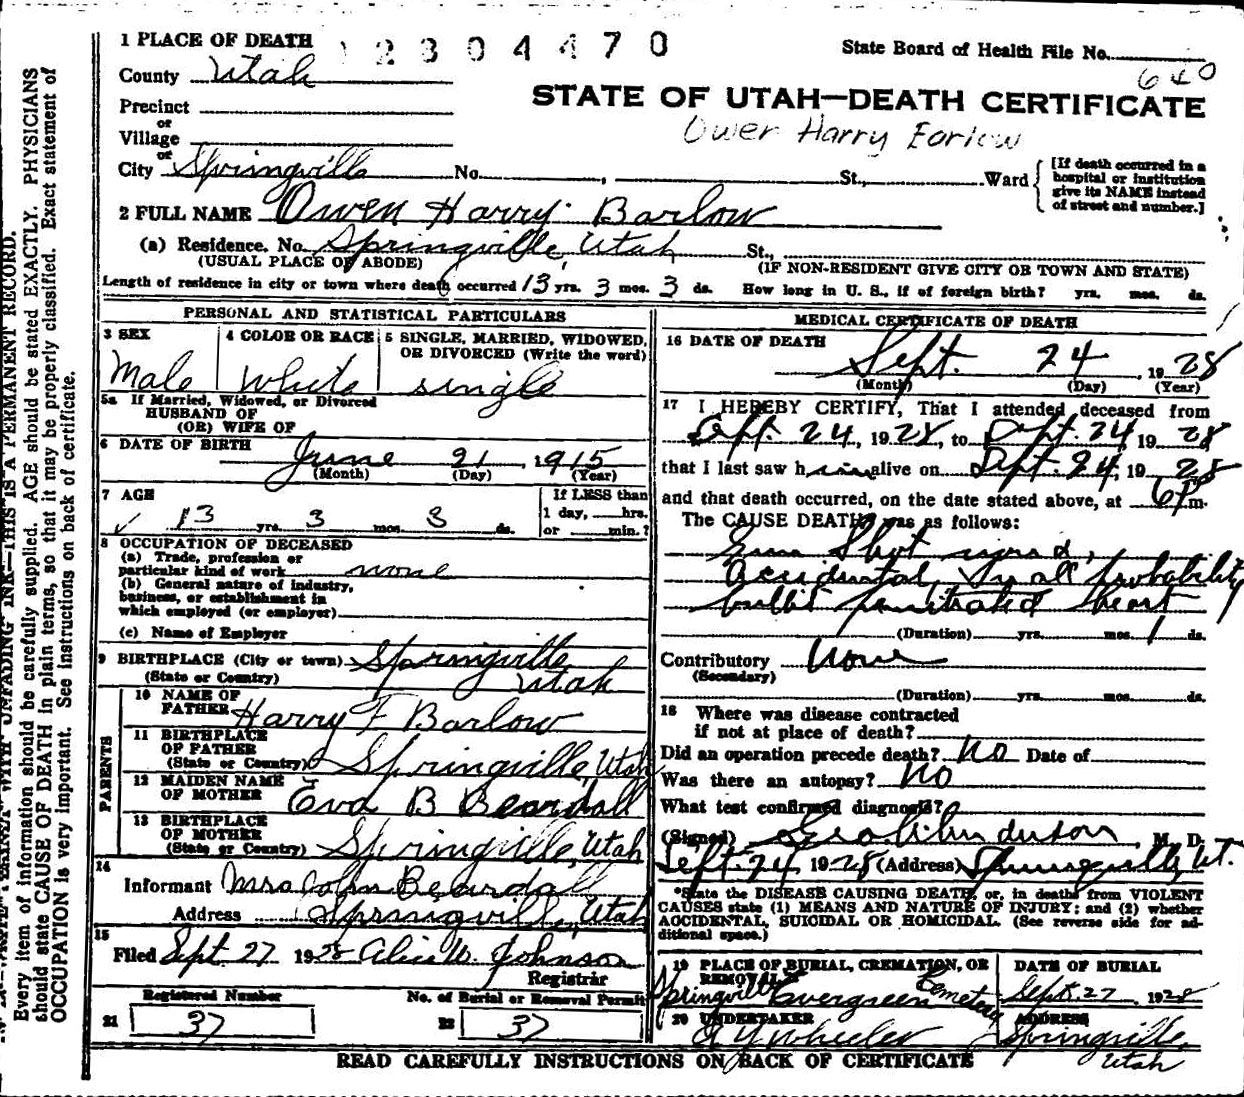 1 PLACE OF DEATH 12804470 State Board of Health File No.
County Utah 640
STATE OF UTAH—DEATH CERTIFICATE
Precinct
or
Village
or
Owen Harry Barlow
City Springville No. , St., Ward [If death occurred in a hospital or institution give its NAME instead of street and number.]
2 FULL NAME Owen Harry Barlow
(a) Residence. No. Springville, Utah St.,
(USUAL PLACE OF ABODE) (IF NON-RESIDENT GIVE CITY OR TOWN AND STATE)
Length of residence in city or town where death occurred 13 yrs. 3 mos. 3 ds. How long in U. S., if of foreign birth? yrs. mos. ds.
PERSONAL AND STATISTICAL PARTICULARS
3 SEX
Male
4 COLOR OR RACE
White
5 SINGLE, MARRIED, WIDOWED,
OR DIVORCED (Write the word)
single
5a If Married, Widowed, or Divorced
HUSBAND OF
(OR) WIFE OF
6 DATE OF BIRTH
June 21, 1915
(Month) (Day) (Year)
7 AGE
13 yrs. 3 mos. 3 ds.
If LESS than
1 day, hrs.
or min.?
8 OCCUPATION OF DECEASED
(a) Trade, profession or
particular kind of work none
(b) General nature of industry,
business, or establishment in
which employed (or employer)
(c) Name of Employer
9 BIRTHPLACE (City or town) Springville
(State or Country) Utah
PARENTS
10 NAME OF
FATHER Harry F Barlow
11 BIRTHPLACE
OF FATHER
(State or Country) Springville, Utah
12 MAIDEN NAME
OF MOTHER Eva B Beardall
13 BIRTHPLACE
OF MOTHER
(State or Country) Springville, Utah
14
Informant Mrs John Beardall
Address Springville, Utah
15
Filed Sept 27 1928 Alice W. Johnson
Registrar
Registered Number
21 37
No. of Burial or Removal Permit
22 37
MEDICAL CERTIFICATE OF DEATH
16 DATE OF DEATH
Sept. 24, 1928
(Month) (Day) (Year)
17 I HEREBY CERTIFY, That I attended deceased from
Sept. 24, 1928, to Sept. 24, 1928
that I last saw him alive on Sept. 24, 1928
and that death occurred, on the date stated above, at 6 P m.
The CAUSE DEATH was as follows:
Gun Shot wound,
Accidental, In all probability
bullet penetrated heart
(Duration) yrs. mos. 1 ds.
Contributory None
(Secondary)
(Duration) yrs. mos. ds.
18 Where was disease contracted
if not at place of death?
Did an operation precede death? No Date of
Was there an autopsy? No
What test confirmed diagnosis?
(Signed) Geo. Anderson M. D.
Sept. 24 1928 (Address) Springville, Ut.
*State the DISEASE CAUSING DEATH, or, in deaths from VIOLENT
CAUSES state (1) MEANS AND NATURE OF INJURY; and (2) whether
ACCIDENTAL, SUICIDAL OR HOMICIDAL. (See reverse side for ad-
ditional space.)
19 PLACE OF BURIAL, CREMATION, OR
REMOVAL
Springville Evergreen Cemetery
DATE OF BURIAL
Sept. 27, 1928
20 UNDERTAKER
A Y Wheeler
ADDRESS
Springville,
Utah
READ CAREFULLY INSTRUCTIONS ON BACK OF CERTIFICATE
N. B.—WRITE PLAINLY WITH UNFADING INK—THIS IS A PERMANENT RECORD.
Every item of information should be carefully supplied. AGE should be stated EXACTLY. PHYSICIANS
should state CAUSE OF DEATH in plain terms, so that it may be properly classified. Exact statement of
OCCUPATION is very important. See instructions on back of certificate.